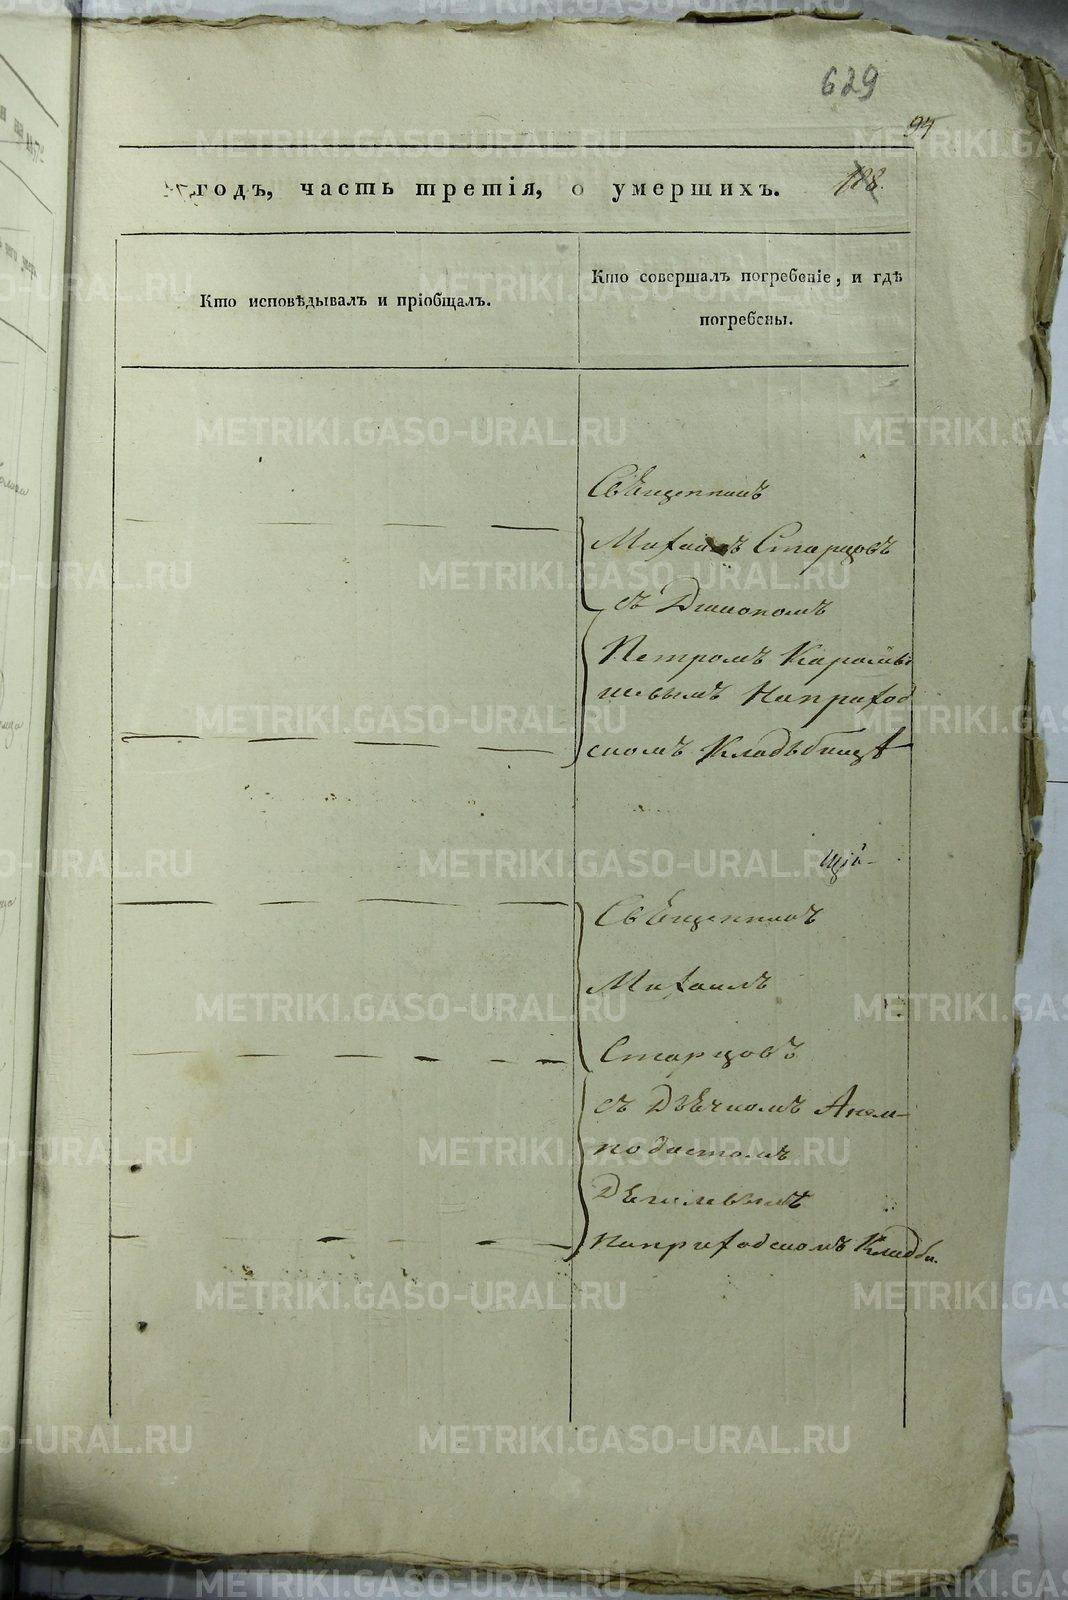 629
94
188.
годъ, часть третія, о умершихъ.
Кто исповѣдывалъ и пріобщалъ.
Кто совершалъ погребеніе, и гдѣ
погребены.
Священникъ
Михаилъ Старцовъ
съ Діакономъ
Петромъ
Наприход
скомъ Кладьбищѣ
Священникъ
Михаилъ
Старцовъ
съ Дьячкомъ
Наприходскомъ Кладби.
METRIKI.GASO-URAL.RU